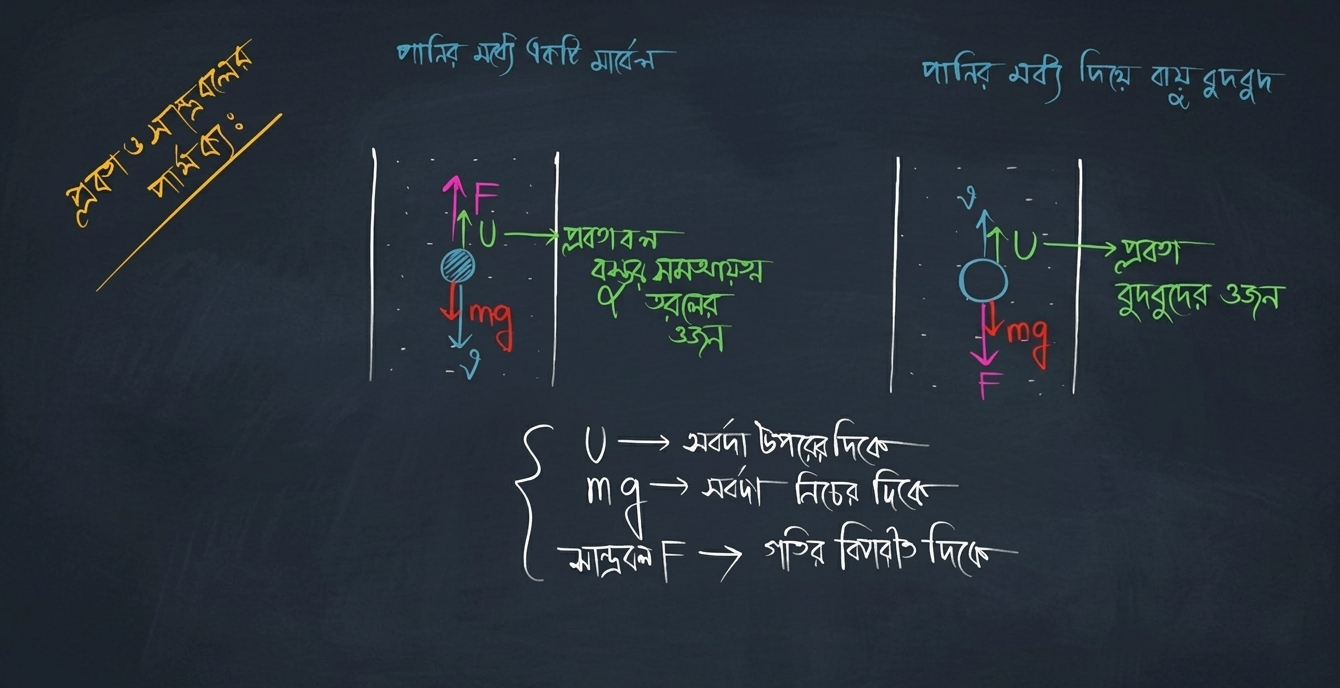 প্লবতা ও সান্দ্রবলের
পার্থক্য:
পানির মধ্যে একটি মার্বেল
পানির মধ্য দিয়ে বায়ু বুদবুদ
F
U → প্লবতা বল
বস্তুর সমআয়তন
তরলের
ওজন
mg
v
v
U → প্লবতা
বুদবুদের ওজন
mg
F
U → সবর্দা উপরের দিকে
mg → সবর্দা নিচের দিকে
সান্দ্রবল F → গতির বিপরীত দিকে